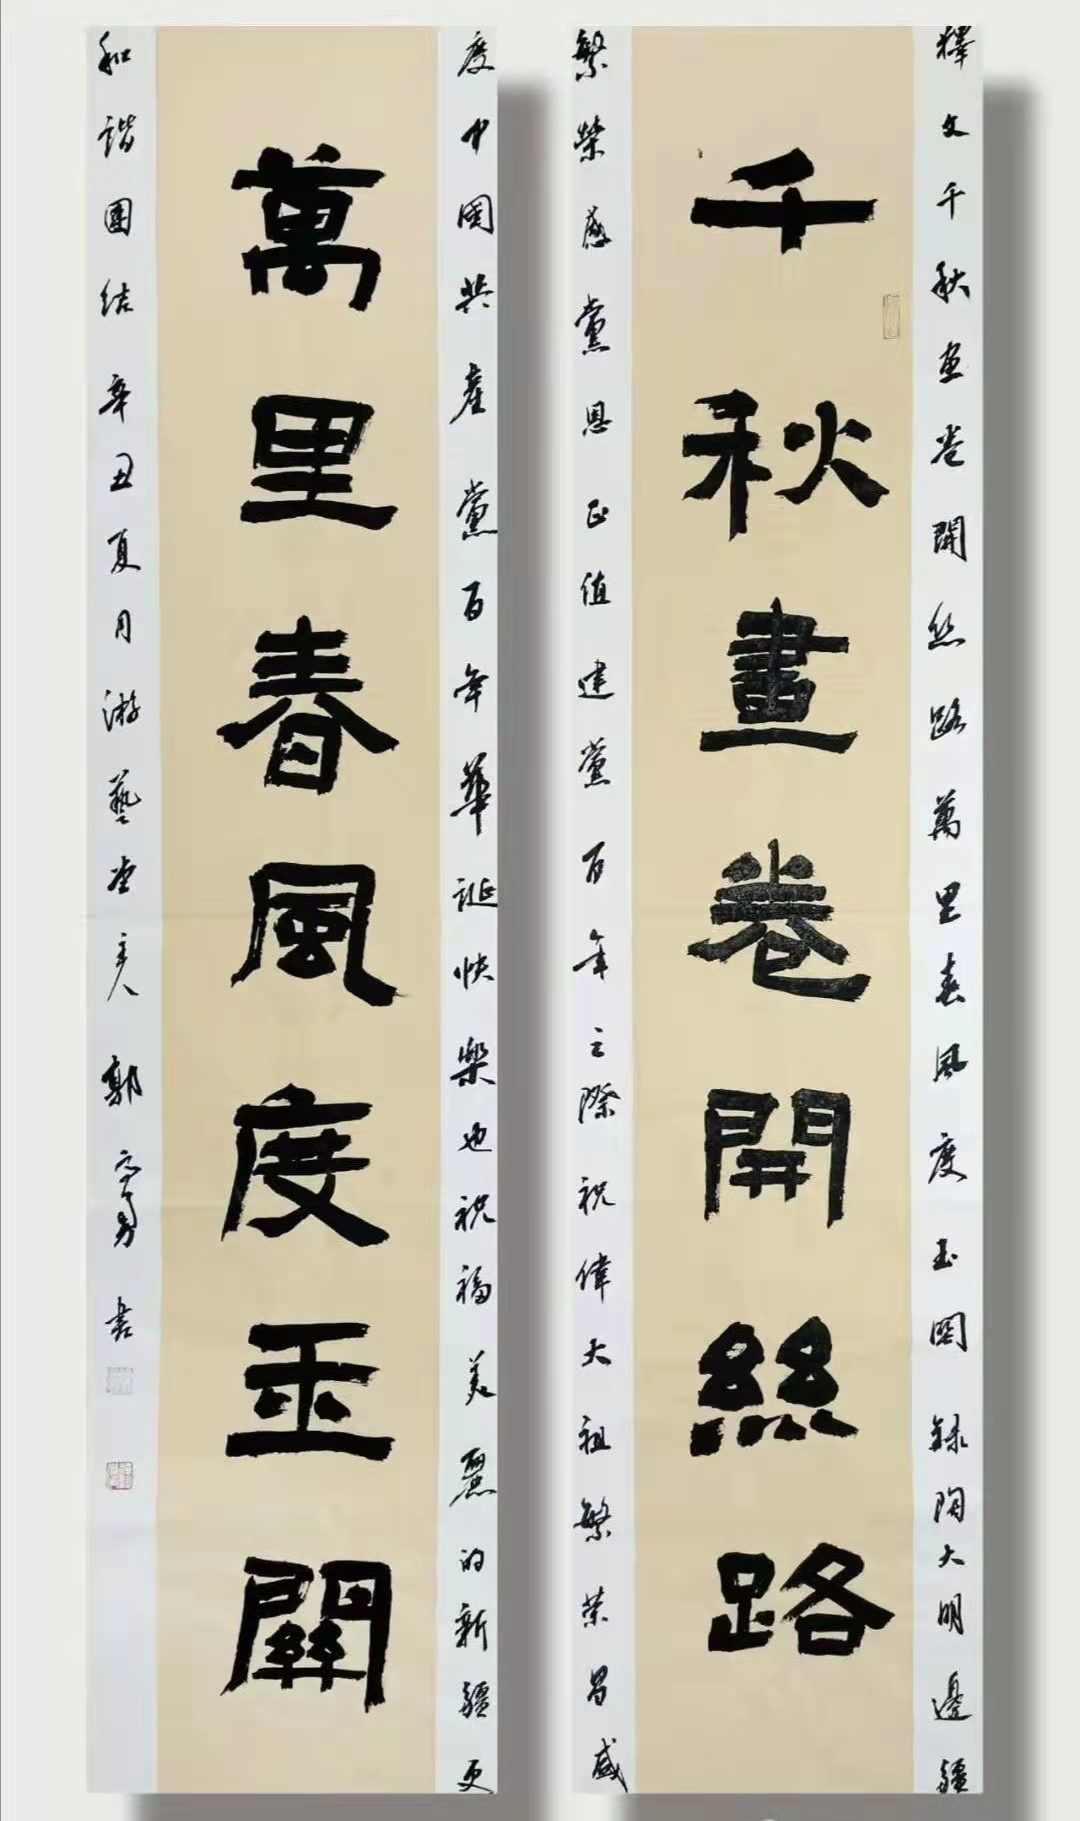 千秋畫卷開絲路
萬里春風度玉關
釋文千秋畫卷開絲路萬里春風度玉關錄陶大明邊疆
繁榮感黨恩正值建黨百年之際祝偉大祖繁榮昌盛
度中國共產黨百年華誕快樂也祝福美麗的新疆更
和諧團結辛丑夏月游藝堂主人郭 書